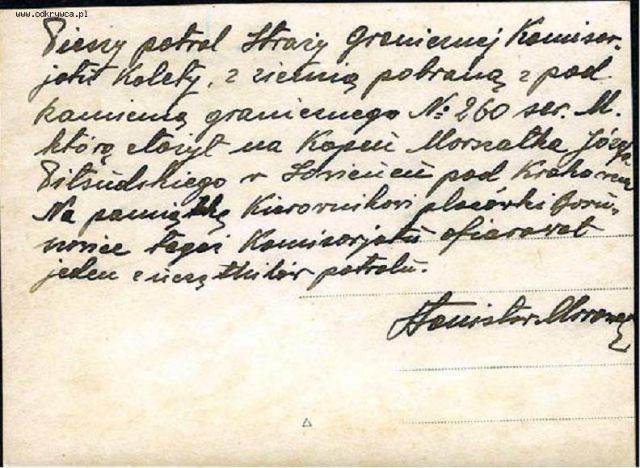 www.odkrywca.pl
Pieszy patrol Straży Granicznej Komisar-
jatu Kalety, z ziemią pobraną z pod
kamienia granicznego № 260 ser. M.
którą złożył na Kopcu Marszałka Józefa
Piłsudskiego w Sowińcu pod Krakowem
Na pamiątkę Kierownikowi placówki Boru-
nowice tegoż Komisarjatu ofiarował
jeden z uczęstników patrolu.
Stanisław